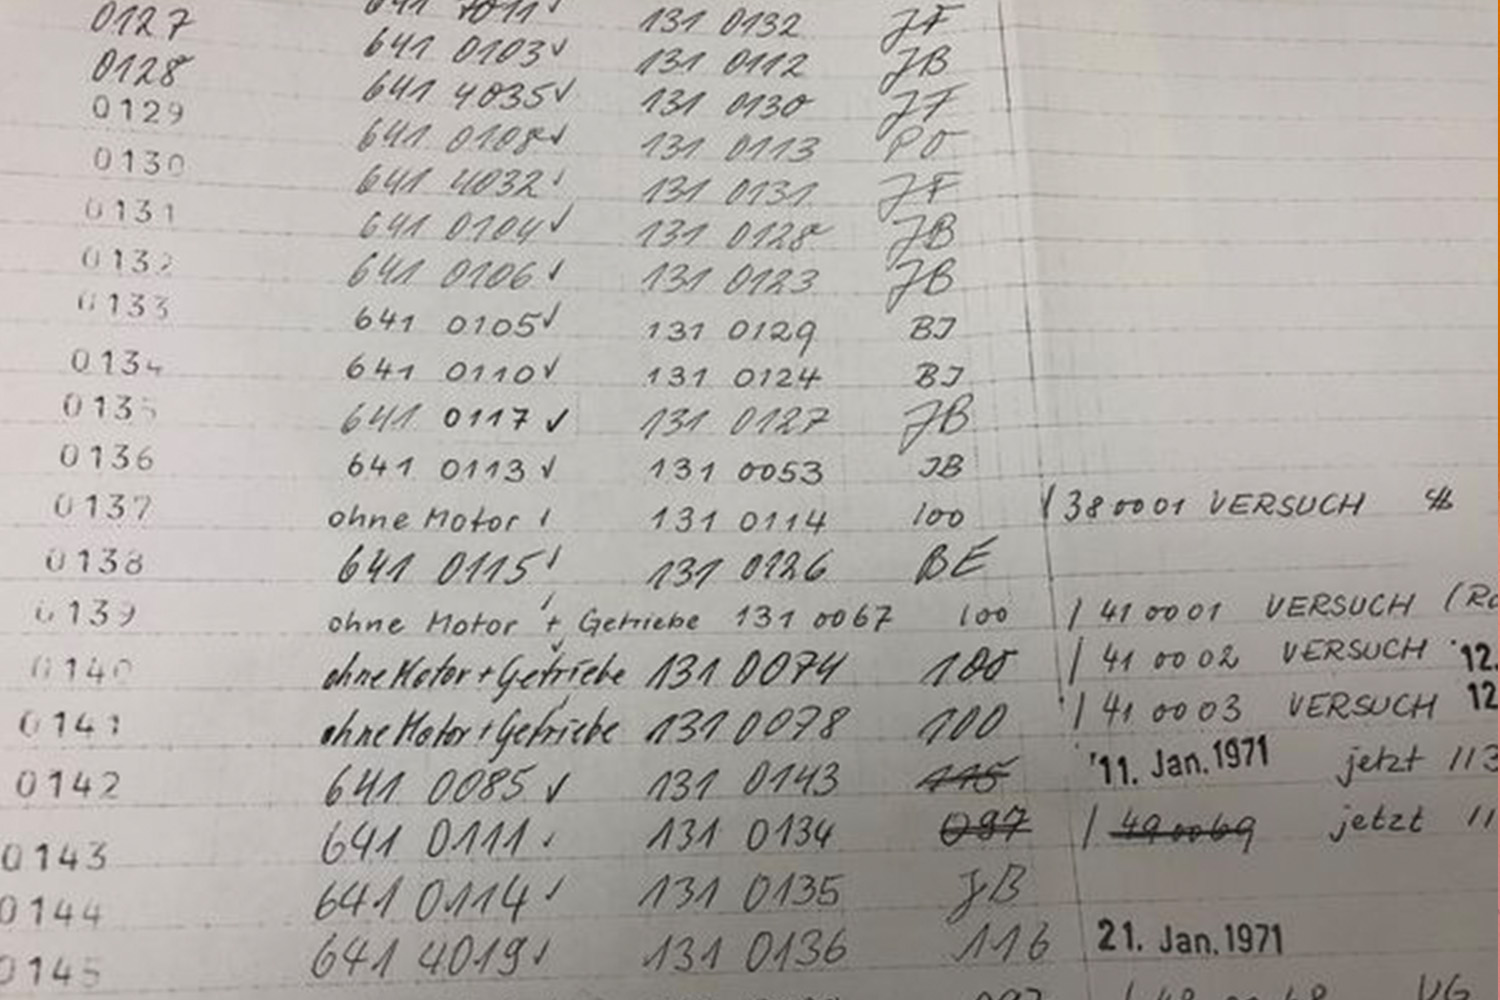 641 4011 ✓ 131 0132 JF
0127 641 0103 ✓ 131 0112 JB
0128 641 4035 ✓ 131 0130 JF
0129 641 0108 ✓ 131 0113 PO
0130 641 4032 ✓ 131 0131 JF
0131 641 0104 ✓ 131 0128 JB
0132 641 0106 ✓ 131 0123 JB
0133 641 0105 ✓ 131 0129 BJ
0134 641 0110 ✓ 131 0124 BJ
0135 641 0117 ✓ 131 0127 JB
0136 641 0113 ✓ 131 0053 JB
0137 ohne Motor 131 0114 100 / 38 0001 VERSUCH
0138 641 0115 ✓ 131 0126 BE
0139 ohne Motor + Getriebe 131 0067 100 / 41 0001 VERSUCH (Ro
0140 ohne Motor + Getriebe 131 0074 100 / 41 0002 VERSUCH 12.
0141 ohne Motor + Getriebe 131 0078 100 / 41 0003 VERSUCH 12
0142 641 0085 ✓ 131 0143 115 11. Jan. 1971 jetzt 113
0143 641 0111 ✓ 131 0134 097 / 49 0069 jetzt 11
0144 641 0114 ✓ 131 0135 JB
0145 641 4019 ✓ 131 0136 116 21. Jan. 1971